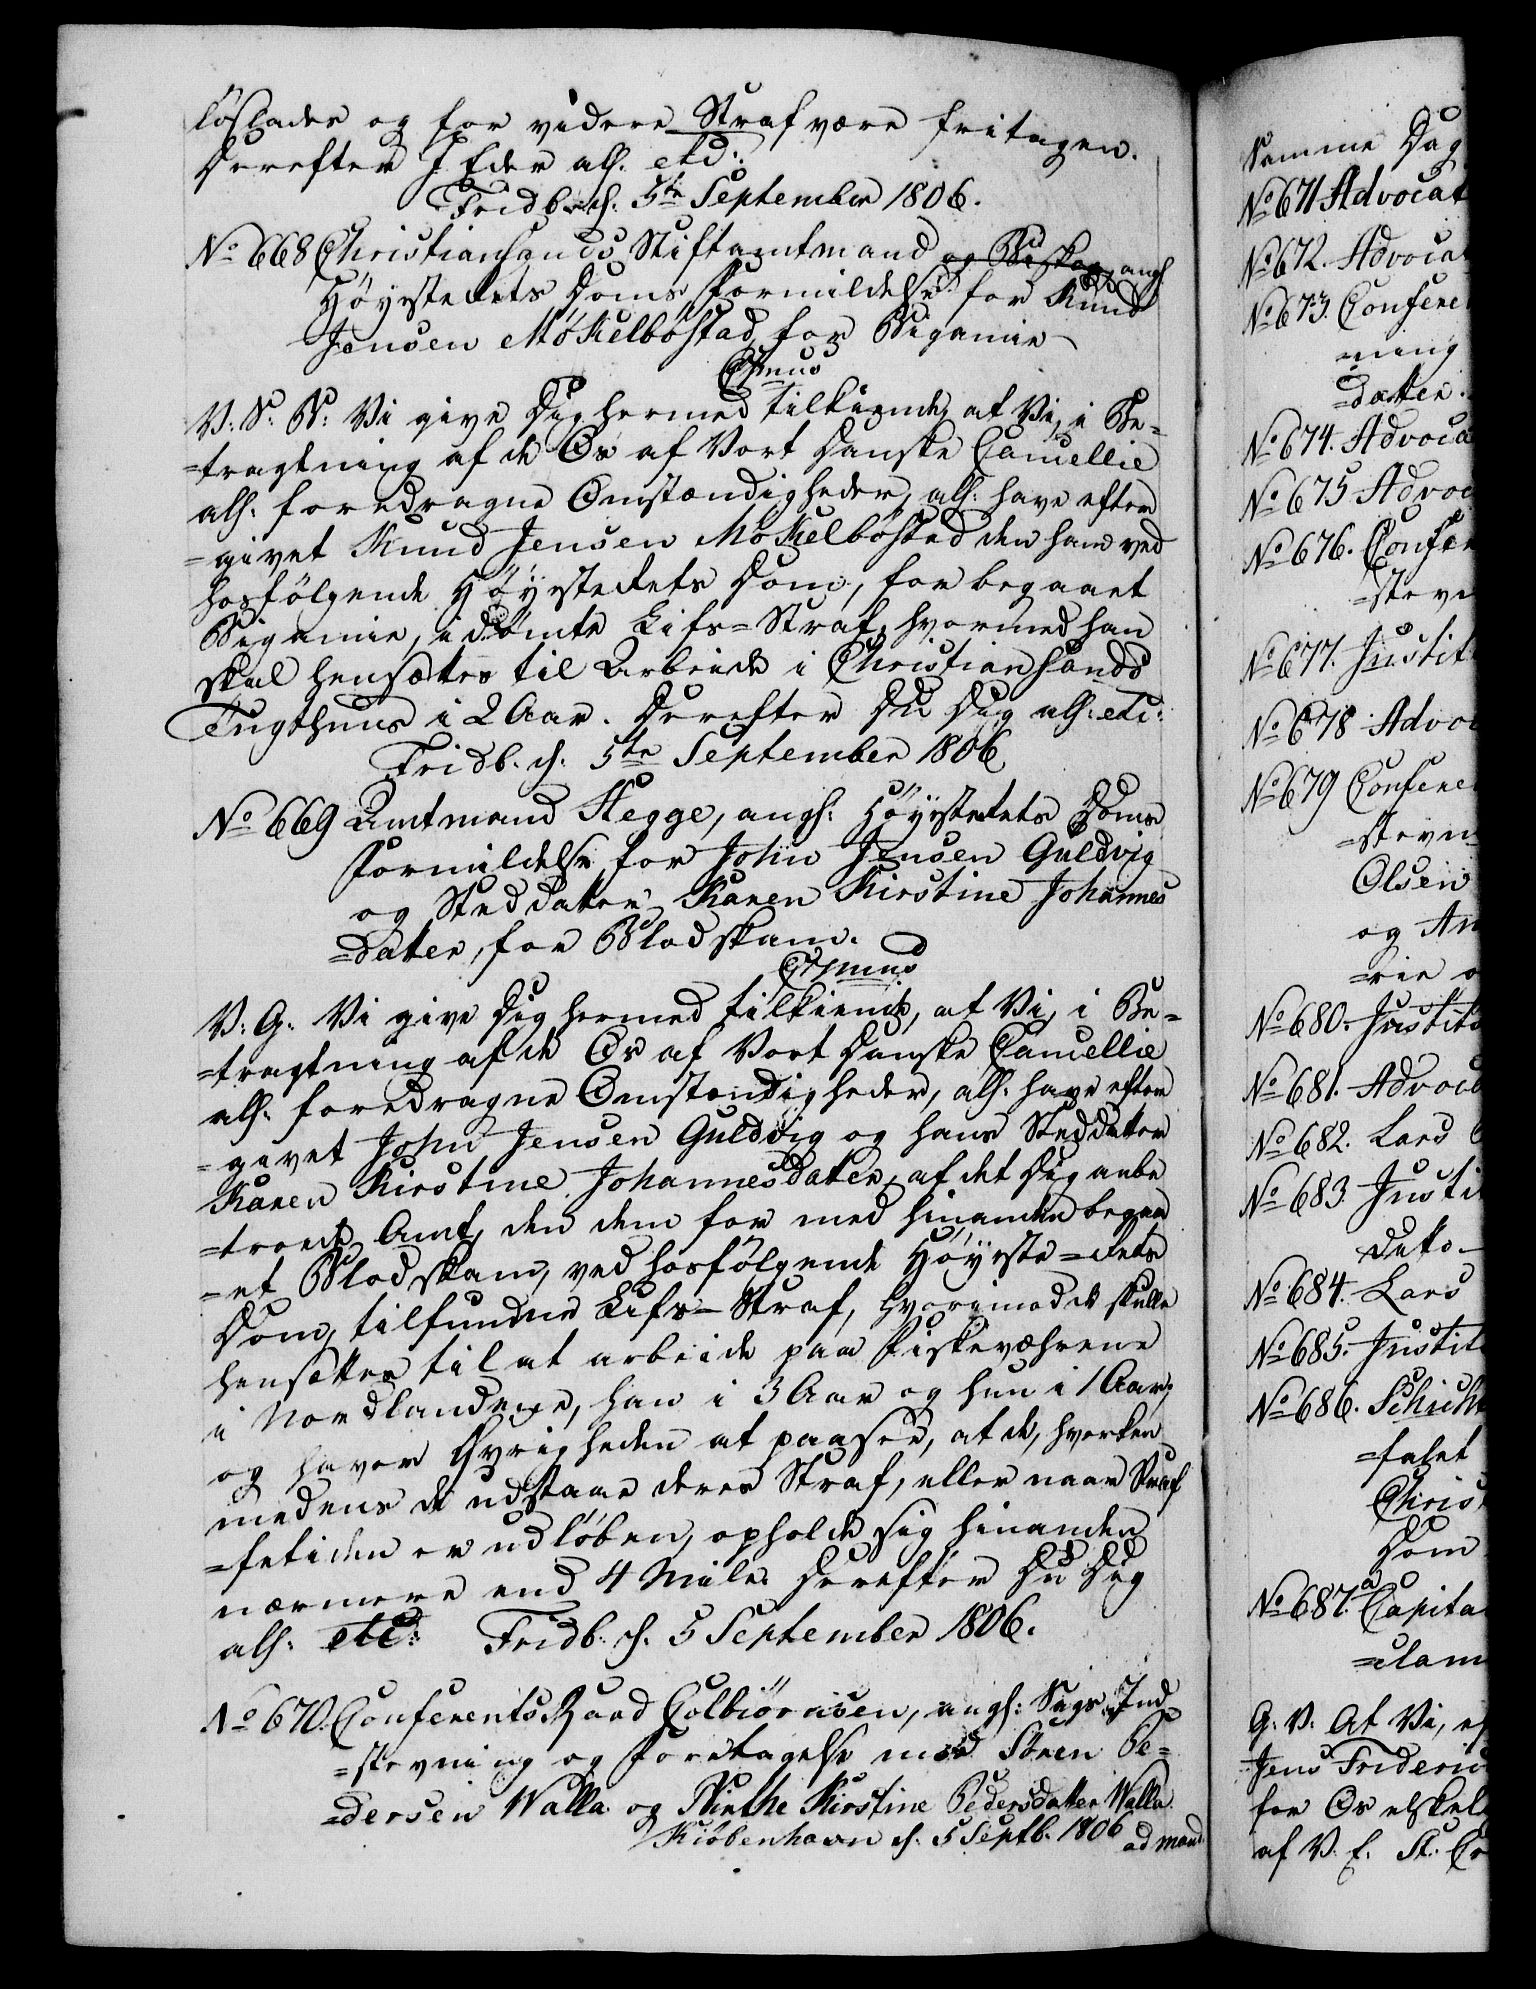 löslades og for videre Straf være fritagen.
Derefter I Eder alh. etc:
Fridb. d. 5te September 1806.
No 668 Christiansands Stiftamtmand og Biskop, angl
Höyesterets Doms Formildelse for Knud
Jensen Mökelböstad, for Bigamie
Cr̅smus
V. S. B: Vi give Dig hermed tilkiende, at Vi, i Be-
=tragtning af de Os af Vort Danske Cancellie
alh. foredragne Omstændigheder, alh: have efter
=givet Knud Jensen Mökelböstad den ham ved
hosfölgende Höyesterets Dom, for begaaet
Bigamie, idömte Lifs=Straf, hvormod han
skal hensættes til Arbeide i Christiansands
Tugthuus i 2 Aar. Derefter Du Dig alh: etc:
Fridb. d. 5te September 1806
No 669 Amtmand Hegge, angl: Höyesterets Doms
Formildelse for John Jensen Guldvig
og Steddatter Karen Kirstine Johannes
=datter, for Blodskam.
V: G: Vi give Dig hermed tilkiende, at Vi, i Be-
=tragtning af de Os af Vort Danske Cancellie
alh: foredragne Omstændigheder, alh: have efter
=givet John Jensen Guldvig og hans Steddatter
Karen Kirstine Johannesdatter, af det Dig anbe
=troede Amt, den dem for med hinanden begaa
=et Blodskam, ved hosfölgende Höyeste=Rets
Dom, tilfundne Lifs=Straf, hvorimod de skulle
hensættes til at arbeide paa Fiskeværerne
i Nordlandene, han i 3 Aar og hun i 1 Aar,
og haver Øvrigheden at paasee, at de, hverken
medens de udstaae deres Straf, eller naar Straf
=fetiden er udlöben, opholde sig hinanden
nærmere end 4 Mile. Derefter Du Dig
alh: etc: Fridb: d. 5 September 1806.
No 670. Conferents Raad Colbiörnsen, angl: Sags Ind
=stevning og Foretagelse mod Sören Pe-
=dersen Walla og Birthe Kirstine Pedersdatter Walla
Kiöbenhavn d. 5 Septb. 1806 ad mand
Samme Dag
No 671 Advocat
No 672. Advocat
No 673. Confere
ning
=datter.
No 674. Advoca
No 675 Advoc
No 676. Confer
=steve
No 677. Justit
No 678 Advoc
No 679 Confere
=stevn
Olsen
og An
=rie o
No 680. Justits
No 681. Advoca
No 682. Lars
No 683 Justit
dato
No 684. Lars
No 685. Justit
No 686.
=falet
Christ
Dom
No 687. a Capita
G: V: At Vi, ef
Jens Frideric
for Os elskel
af V. E. St. Cr